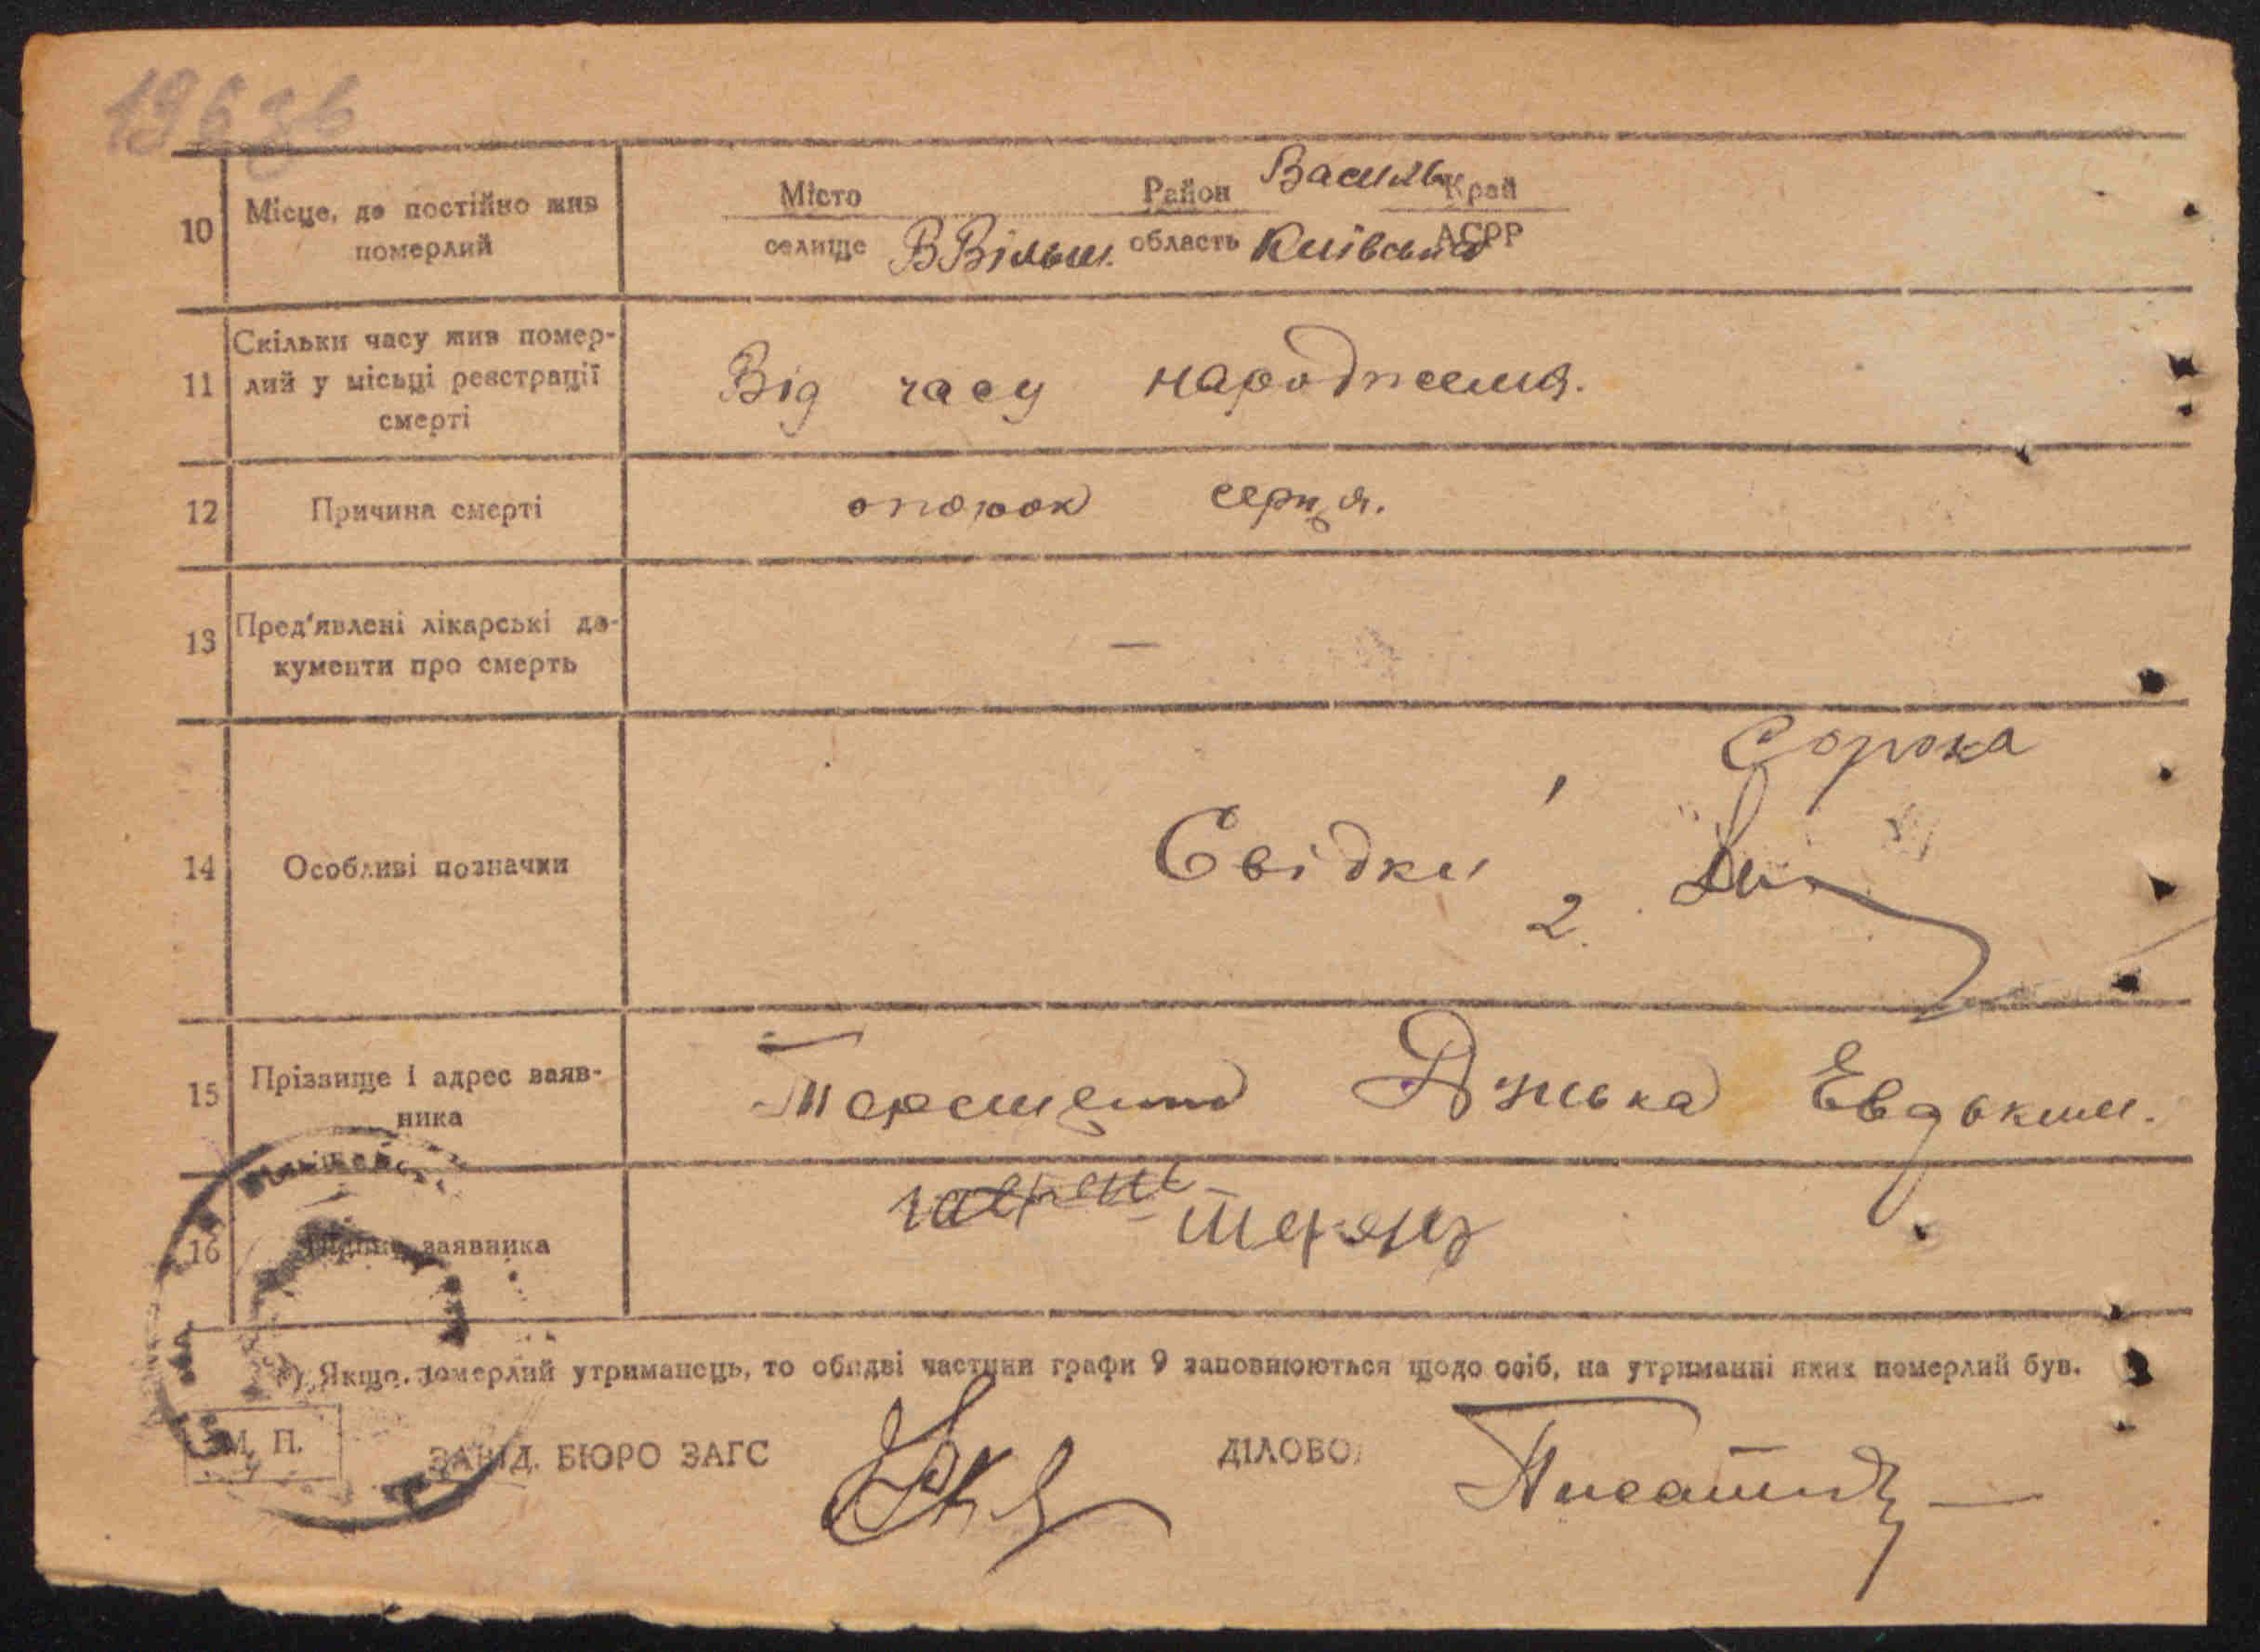 10
Місце, де постійно жив
померлий
Місто
Район Васильк
Край
селище В Вільш.
область Київська
АСРР
11
Скільки часу жив помер-
лий у місьці реєстрації
смерті
Від часу народження.
12
Причина смерті
порок серця.
13
Пред'явлені лікарські до-
кументи про смерть
—
14
Особливі позначки
Сорока
Свідки
2.
15
Прізвище і адрес заяв-
ника
Терещенко Евдоким.
16
заявника
Якщо померлий утриманець, то обидві частини графи 9 заповнюються щодо осіб, на утриманні яких померлий був.
М. П.
ЗАВІД. БЮРО ЗАГС
ДІЛОВОД